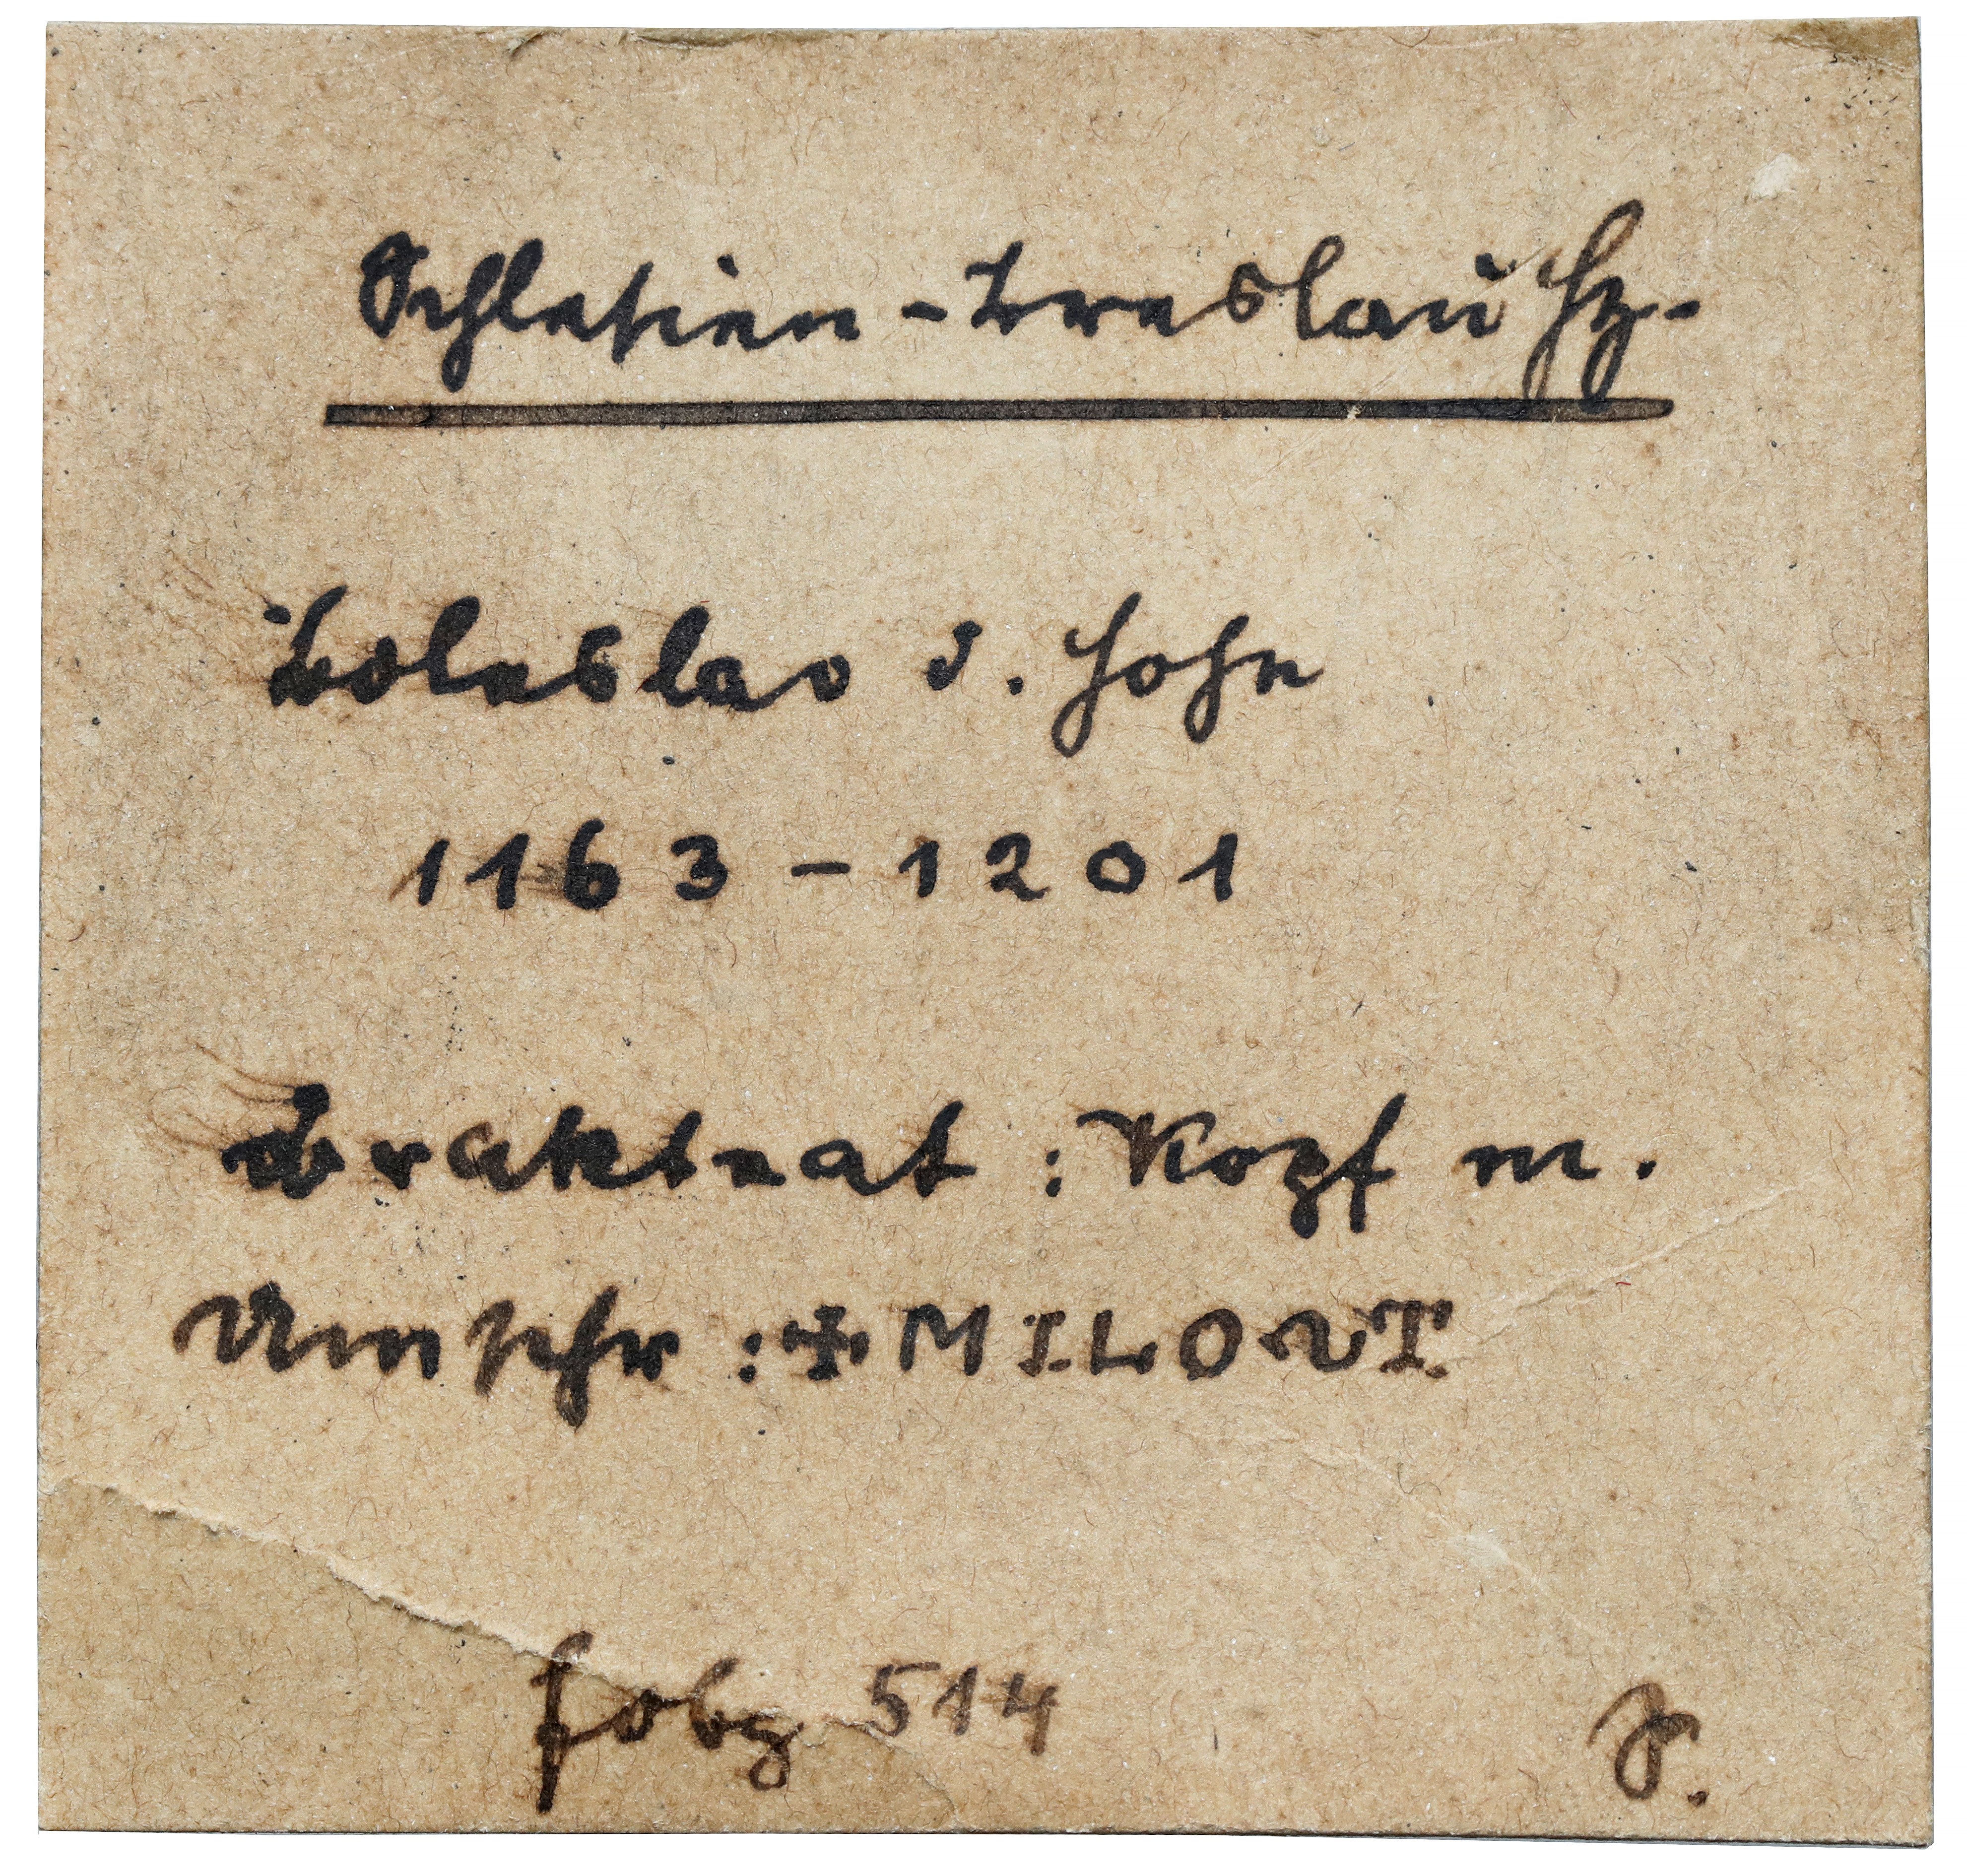 Schlesien - Breslau Hz.
Boleslav d. Hohe
1163 - 1201
Brakteat : Kopf m.
Umschr : ✠ MILOVT
fbg 514